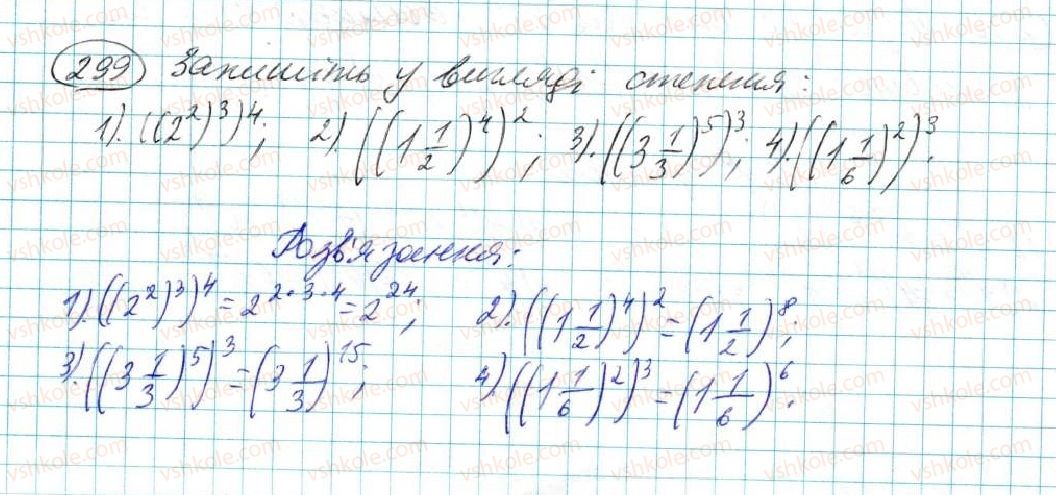 299 Запишіть у вигляді степеня:
1). ((2²)³)⁴; 2) ((1 1/2)⁴)²; 3). ((3 1/3)⁵)³; 4). ((1 1/6)²)³.
Розв'язання:
1). ((2²)³)⁴ = 2^(2·3·4) = 2²⁴; 2). ((1 1/2)⁴)² = (1 1/2)⁸;
3). ((3 1/3)⁵)³ = (3 1/3)¹⁵; 4) ((1 1/6)²)³ = (1 1/6)⁶.